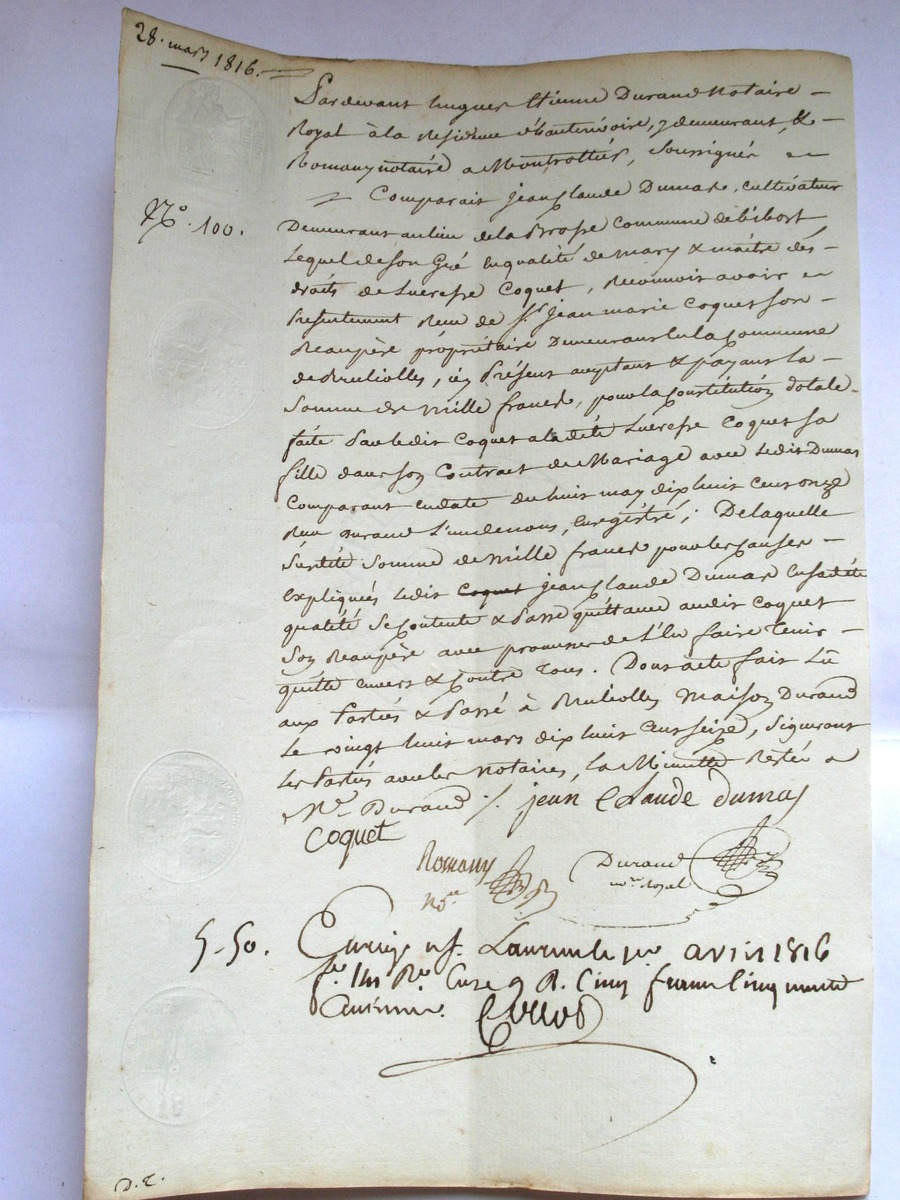 28. mars 1816.
Pardevant hugues Etienne Durand Notaire
Royal à la Residence d'hauterivoire, y demeurant, &
Romany notaire a Montrottier, Soussignés
N.º 100.
Comparait jean Claude Dumas, cultivateur
Demeurant au lieu de la Brosse Commune de
Lequel de Son Gré en qualité de mary & maitre des
droits de Lucresse Coquet, Reconnoit avoir
Presentement Recu de Sr. jean marie Coquet Son
Beaupère propriétaire Demeurant en la Commune
de Bruliolles, ici Présent acceptant & payant la
Somme de mille francs, pour la Constitution dotale
faite Par ledit Coquet a la dite Lucresse Coquet Sa
fille dans Son Contract de Mariage avec Ledit Dumas
Comparant en date du huit may dix huit cent onze
Recu Durand L'un de nous, Enregistré; De laquelle
Susdite Somme de mille francs pour les Causes
Expliquées Ledit Coquet jean Claude Dumas En Sa dite
qualité Se Contente & Passe quittance audit Coquet
Son Beaupère avec promesse de L'En faire Tenir
quitte Envers & Contre Tous. Dont acte fait Lû
aux Parties & Passé à Brulliolles Maison Durand
Le vingt huit mars dix huit Cent Seize, Signeront
Les Parties avec les notaires, la Minutte Restée a
Me. Durand ./. jean Claude dumas
Coquet
Romany
Nore
Durand
nore Royal
5-50. Enregistré à St. Laurent le per avril 1816
fo 141 Ro Case 9 R. Cinq francs Cinquante
Centimes.
D. C.